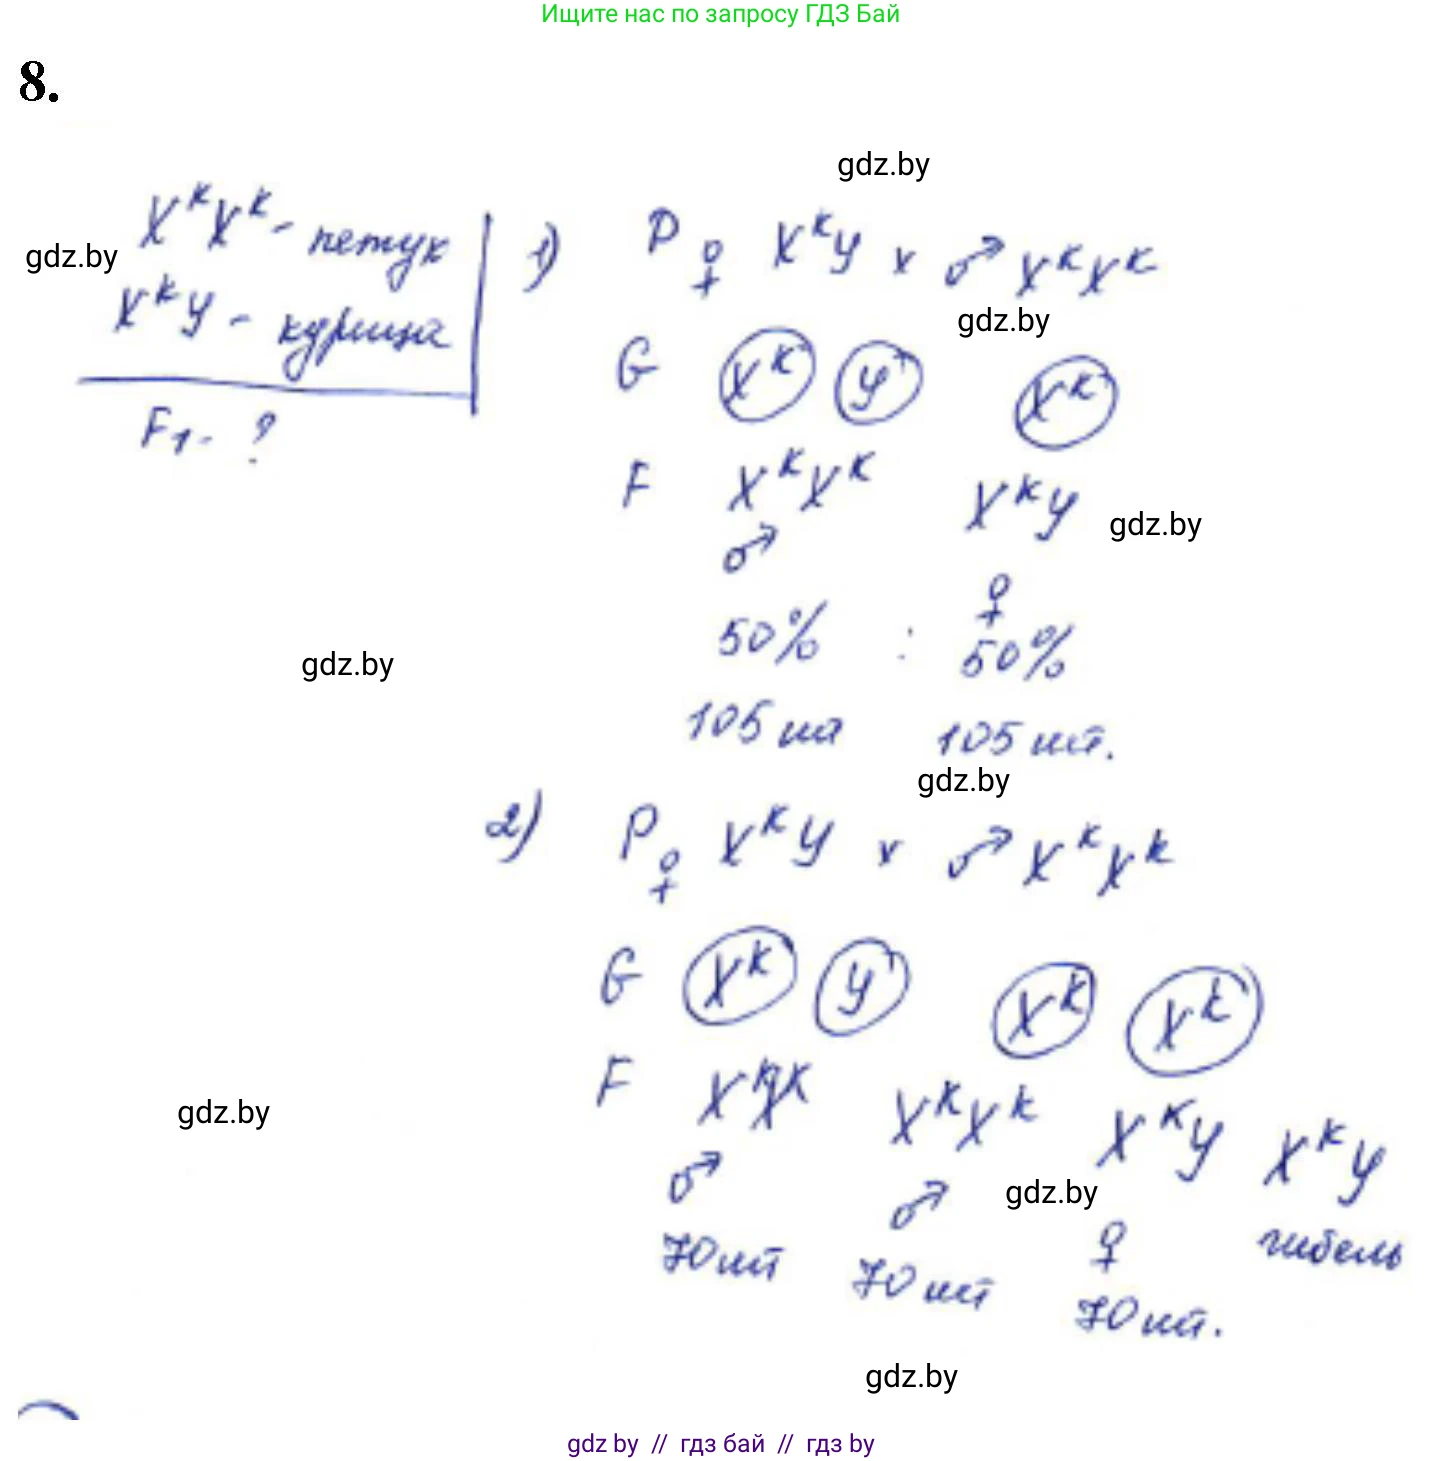 Ищите нас по запросу ГДЗ Бай
8.
gdz.by
X^K X^k - петух
gdz.by
X^k У - курица
F₁ - ?
1) P ♀ X^K У x ♂ X^K X^K
gdz.by
G X^K У X^K
F X^K X^K X^K У
gdz.by
♂ ♀
50% : 50%
gdz.by
105 шт 105 шт.
gdz.by
2) P ♀ X^K У x ♂ X^K X^k
G X^K У X^K X^k
F X^K X^K X^K X^k X^K У X^k У
gdz.by
♂ ♂ ♀ гибель
gdz.by
70 шт 70 шт 70 шт.
gdz.by
gdz by // гдз бай // гдз by